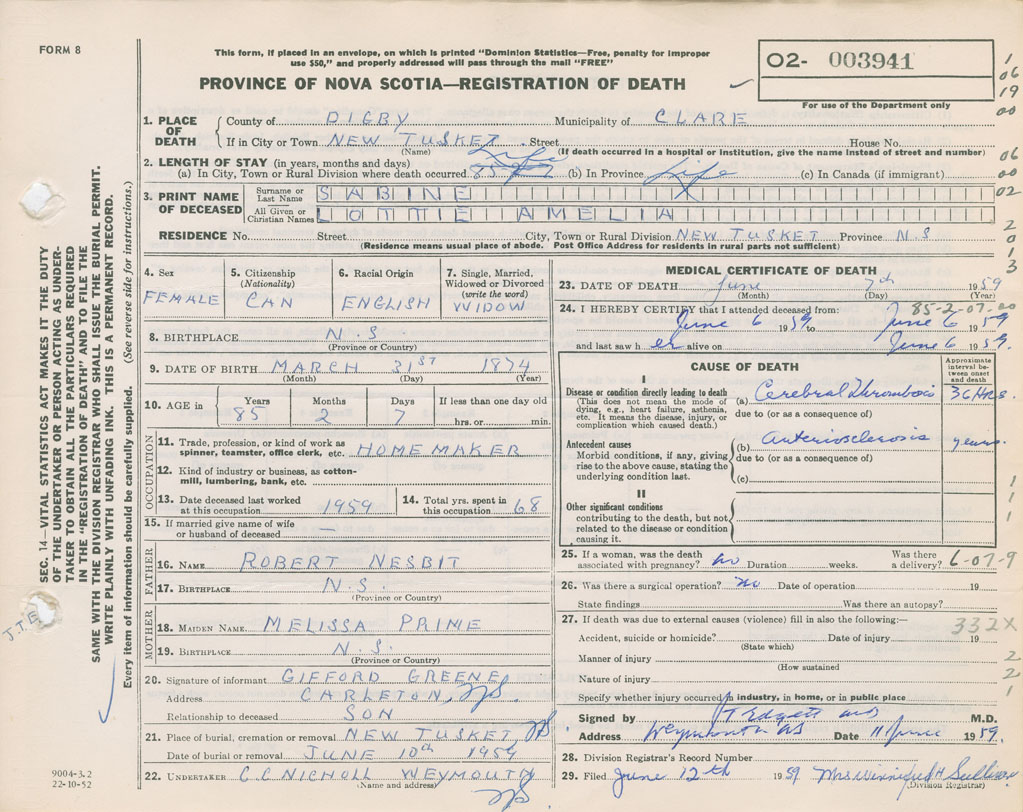 FORM 8
This form, if placed in an envelope, on which is printed "Dominion Statistics—Free, penalty for improper
use $50," and properly addressed will pass through the mail "FREE"
PROVINCE OF NOVA SCOTIA—REGISTRATION OF DEATH
02- 003941
For use of the Department only
1 06 19 00
06 00 02
2 0 1 3
SEC. 14—VITAL STATISTICS ACT MAKES IT THE DUTY
OF THE UNDERTAKER OR PERSON ACTING AS UNDER-
TAKER TO OBTAIN ALL THE PARTICULARS REQUIRED
IN THE "REGISTRATION OF DEATH" AND TO FILE THE
SAME WITH THE DIVISION REGISTRAR WHO SHALL ISSUE THE BURIAL PERMIT.
WRITE PLAINLY WITH UNFADING INK. THIS IS A PERMANENT RECORD.
Every item of information should be carefully supplied. (See reverse side for instructions.)
J.T.E.
1. PLACE OF DEATH
County of DIGBY Municipality of CLARE
If in City or Town NEW TUSKET Street House No.
(Name) (If death occurred in a hospital or institution, give the name instead of street and number)
2. LENGTH OF STAY (in years, months and days)
(a) In City, Town or Rural Division where death occurred 85 Life (b) In Province Life (c) In Canada (if immigrant)
3. PRINT NAME OF DECEASED
Surname or Last Name SABINE
All Given or Christian Names LOTTIE AMELIA
RESIDENCE No. Street City, Town or Rural Division NEW TUSKET Province N.S
(Residence means usual place of abode. Post Office Address for residents in rural parts not sufficient)
4. Sex FEMALE
5. Citizenship (Nationality) CAN
6. Racial Origin ENGLISH
7. Single, Married, Widowed or Divorced (write the word) WIDOW
8. BIRTHPLACE N.S
(Province or Country)
9. DATE OF BIRTH MARCH 31ST 1874
(Month) (Day) (Year)
10. AGE in Years 85 Months 2 Days 7 If less than one day old hrs. or min.
OCCUPATION
11. Trade, profession, or kind of work as
spinner, teamster, office clerk, etc. HOMEMAKER
12. Kind of industry or business, as cotton-
mill, lumbering, bank, etc.
13. Date deceased last worked at this occupation 1959
14. Total yrs. spent in this occupation 68
15. If married give name of wife
or husband of deceased —
FATHER
16. NAME ROBERT NESBIT
17. BIRTHPLACE N.S.
(Province or Country)
MOTHER
18. MAIDEN NAME MELISSA PRIME
19. BIRTHPLACE N.S.
(Province or Country)
20. Signature of informant GIFFORD GREENE
Address CARLETON, NS
Relationship to deceased SON
21. Place of burial, cremation or removal NEW TUSKET NS
Date of burial or removal JUNE 10th 1959
22. UNDERTAKER C.C NICHOLL WEYMOUTH
(Name and address) NS
9004-3.2
22-10-52
MEDICAL CERTIFICATE OF DEATH
23. DATE OF DEATH June 7th 1959
(Month) (Day) (Year)
85-2-07-00
24. I HEREBY CERTIFY that I attended deceased from:
June 6 1959 to June 6 1959
and last saw h er alive on June 6 1959.
CAUSE OF DEATH
Approximate interval between onset and death
I
Disease or condition directly leading to death
(This does not mean the mode of
dying, e.g., heart failure, asthenia,
etc. It means the disease, injury, or
complication which caused death.)
(a) Cerebral Thrombosis 36 Hrs.
due to (or as a consequence of)
Antecedent causes
Morbid conditions, if any, giving
rise to the above cause, stating the
underlying condition last.
(b) Arteriosclerosis years.
due to (or as a consequence of)
(c)
II
Other significant conditions
contributing to the death, but not
related to the disease or condition
causing it.
1
1
1
25. If a woman, was the death
associated with pregnancy? no Duration weeks. Was there a delivery?
6-07-9
26. Was there a surgical operation? No Date of operation 19
State findings Was there an autopsy?
27. If death was due to external causes (violence) fill in also the following:—
332X
Accident, suicide or homicide? Date of injury 19
(State which)
Manner of injury 2
(How sustained)
Nature of injury 2
Specify whether injury occurred in industry, in home, or in public place 1
Signed by J T Edgett M.D.
Address Weymouth NS Date 11 June 1959.
28. Division Registrar's Record Number
29. Filed June 12th 1959 Mrs Winnifred H Sullivan
(Division Registrar)